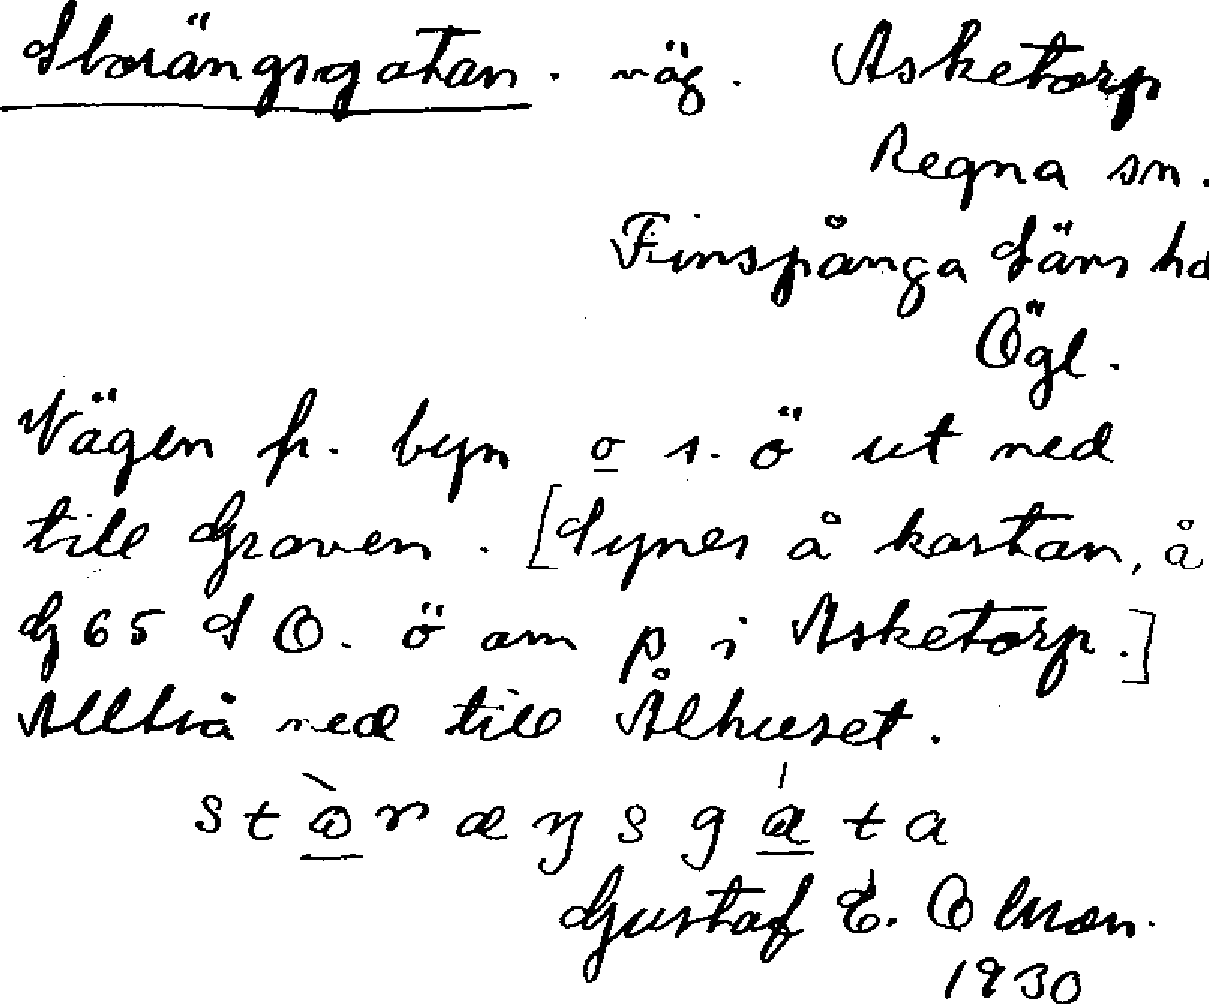 Storängsgatan. väg. Asketorp
Regna sn.
Finspånga läns hd
Ögl.
Vägen fr. byn o s. ö ut ned
till Graven. [Synes å kartan, å
G 65 S O. ö om p i Asketorp.]
Alltså ned till Ålhuset.
stòræŋsgáta
Gustaf E. Olson.
1930